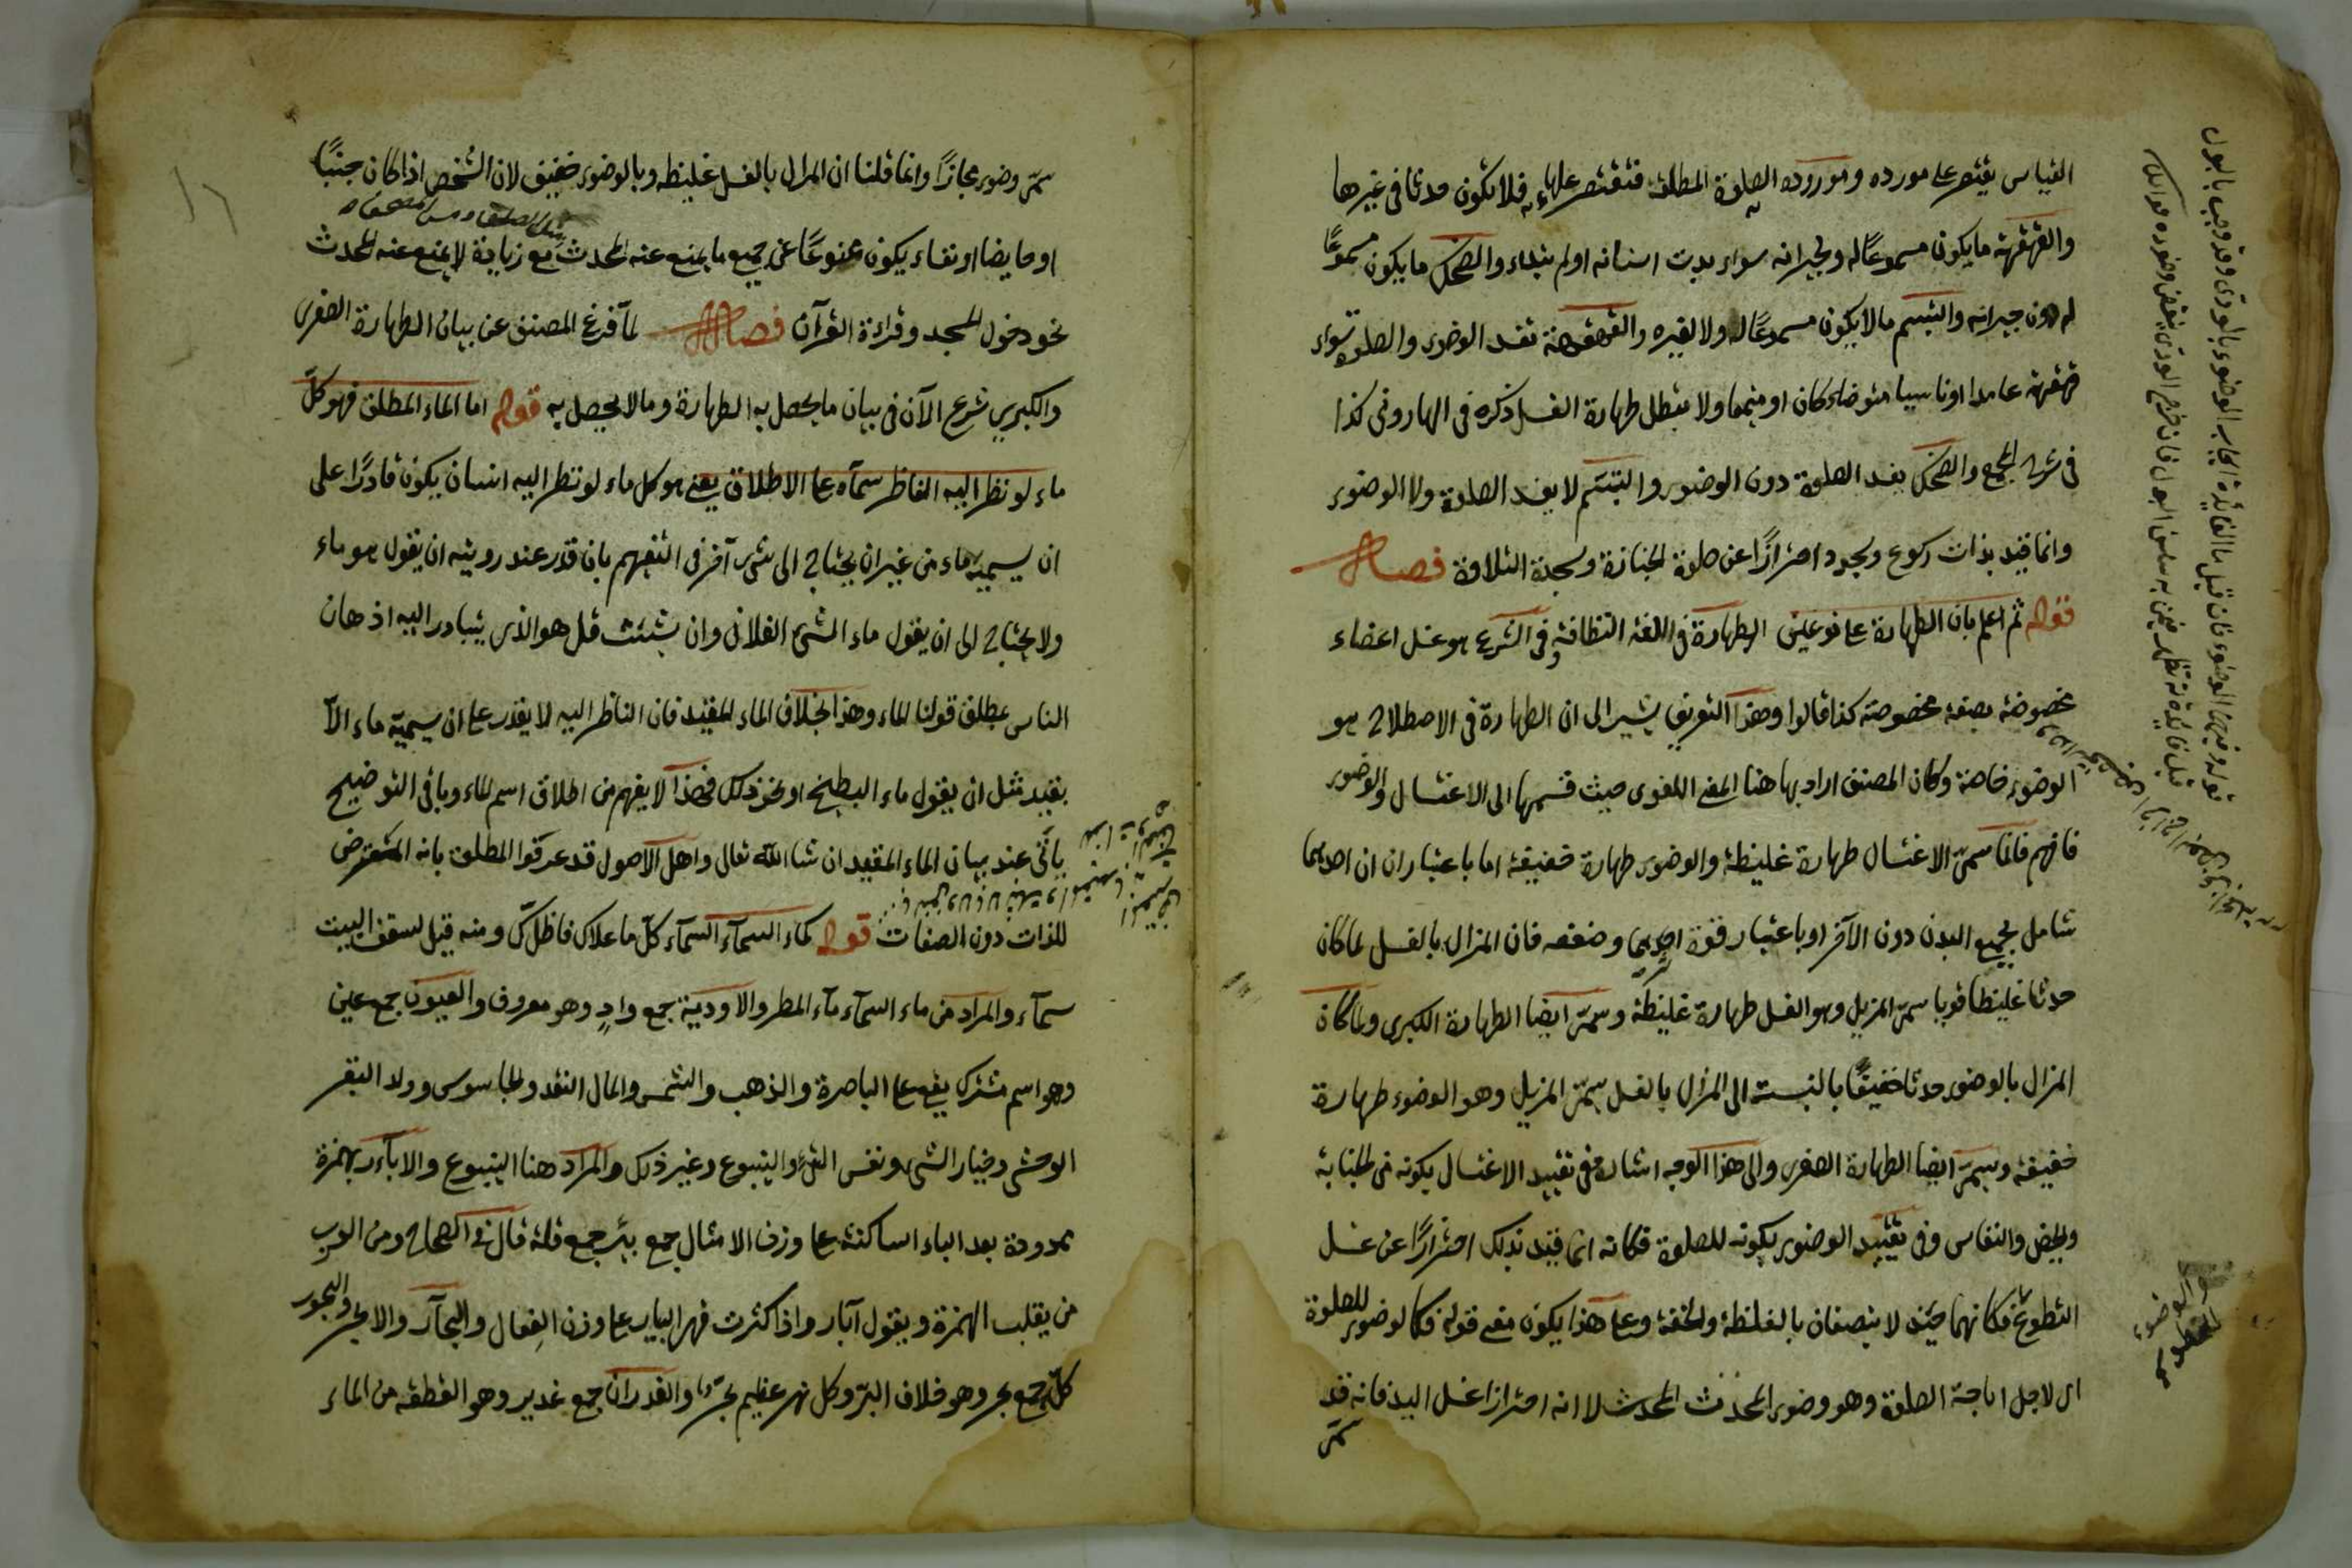 القياس يقتصر على مورده ومورده الصلوة المطلقة فتقتصر عليها فلا يكون حدثا في غيرها
والقهقهة ما يكون مسموعًا له ولجيرانه سواء بدت اسنانه او لم تبد والضحك ما يكون مسموعًا
له دون جيرانه والتبسم ما لا يكون مسموعًا له ولا لغيره والقهقهة تفسد الوضوء والصلوة سواء
قهقهة عامدا او ناسيا متوضاء كان او متيمما ولا يبطل طهارة الغسل ذكره في الهاروني كذا
في شرح المجمع والضحك يفسد الصلوة دون الوضوء والتبسّم لا يفسد الصلوة ولا الوضوء
وانما قيد بذات ركوع وسجود احترازًا عن صلوة الجنازة وسجدة التلاوة فصل
قوله ثم اعلم بان الطهارة على نوعين الطهارة في اللغة النظافة وفي الشرع هو غسل اعضاء
مخصوصة بصفة مخصوصة كذا قالوا وهذا التعريف يشير الى ان الطهارة في الاصطلاح هو
الوضوء خاصة وكان المصنف اراد بها هنا المعنى اللغوي حيث قسمها الى الاغتسال والوضوء
فافهم فانما سمى الاغتسال طهارة غليظة والوضوء طهارة خفيفة اما باعتبار ان احديهما
شامل لجميع البدن دون الآخر او باعتبار قوة احديهما وضعفه فان المزال بالغسل لما كان
حدثا غليظا قويا سمى المزيل وهو الغسل طهارة غليظة وسمى ايضا الطهارة الكبرى ولما كان
المزال بالوضوء حدثا خفيفًا بالنسبة الى المزال بالغسل سمى المزيل وهو الوضوء طهارة
خفيفة وسمى ايضا الطهارة الصغرى والى هذا الوجه اشار في تقييد الاغتسال بكونه من الجنابة
والحيض والنفاس وفي تقييد الوضوء بكونه للصلوة فكانه انما قيد بذلك احترازًا عن غسل
التطوع فكانهما حينئذ لا يتصفان بالغلظة والخفة وعلى هذا يكون معنى قوله فكالوضوء للصلوة
اى لاجل اباحة الصلوة وهو وضوء المحدث لا انه احترازا غسل اليد فانه قد
سمى
والوضوء
قوله وفي الوضوء فان قيل ما الفائدة ايجاب الوضوء بالودى وقد وجب بالبول
قيل فائدته تظهر فيمن به سلس البول فان خرج الودى ينقض وضوءه
سمى وضوء مجازًا وانما قلنا ان المزال بالغسل غليظ وبالوضوء خفيف لان الشخص اذا كان جنبًا
او حايضا او نفساء يكون ممنوعًا عن جميع ما يمنع عنه المحدث مع زيادة لا يمنع عنه المحدث
نحو دخول المسجد وقراءة القرآن فصل لما فرغ المصنف عن بيان الطهارة الصغرى
والكبرى شرع الآن في بيان ما يحصل به الطهارة وما لا يحصل به قوله اما الماء المطلق فهو كل
ماء لو نظر اليه الناظر سماه على الاطلاق يعنى هو كل ماء لو نظر اليه انسان يكون قادرًا على
ان يسميه ماء من غير ان يحتاج الى شىء آخر في التفهيم بان قدر عند رويته ان يقول هو ماء
ولا يحتاج الى ان يقول ماء الشىء الفلانى وان شئت قل هو الذى يتبادر اليه اذهان
الناس بمطلق قولنا الماء وهذا بخلاف الماء المقيد فان الناظر اليه لا يقدر على ان يسميه ماء الا
بقيد مثل ان يقول ماء البطيخ او نحو ذلك فهذا لا يفهم من اطلاق اسم الماء وباقى التوضيح
ياتى عند بيان الماء المقيد ان شا الله تعالى واهل الاصول قد عرفوا المطلق بانه المتعرض
للذات دون الصفات قوله كماء السماء السماء كلّ ما علاك فاظلك ومنه قيل لسقف البيت
سماء والمراد من ماء السماء ماء المطر والاودية جمع وادٍ وهو معروف والعيون جمع عين
وهو اسم مشترك يقع على الباصرة والذهب والشمس والمال النقد والجاسوس وولد البقر
الوحشى وخيار الشىء ونفس الشىء والينبوع وغير ذلك والمراد هنا الينبوع والاباءر بهمزة
ممدودة بعد الباء الساكنة على وزن الامثال جمع بئر جمع قلة قال في الصحاح ومن العرب
من يقلب الهمزة ويقول آبار واذا كثرت فهى البيار على وزن الفعال والبحار والابحر والبحور
كلّه جمع بحر وهو خلاف البرّ وكل نهر عظيم بحرٌ والغدران جمع غدير وهو القطعة من الماء